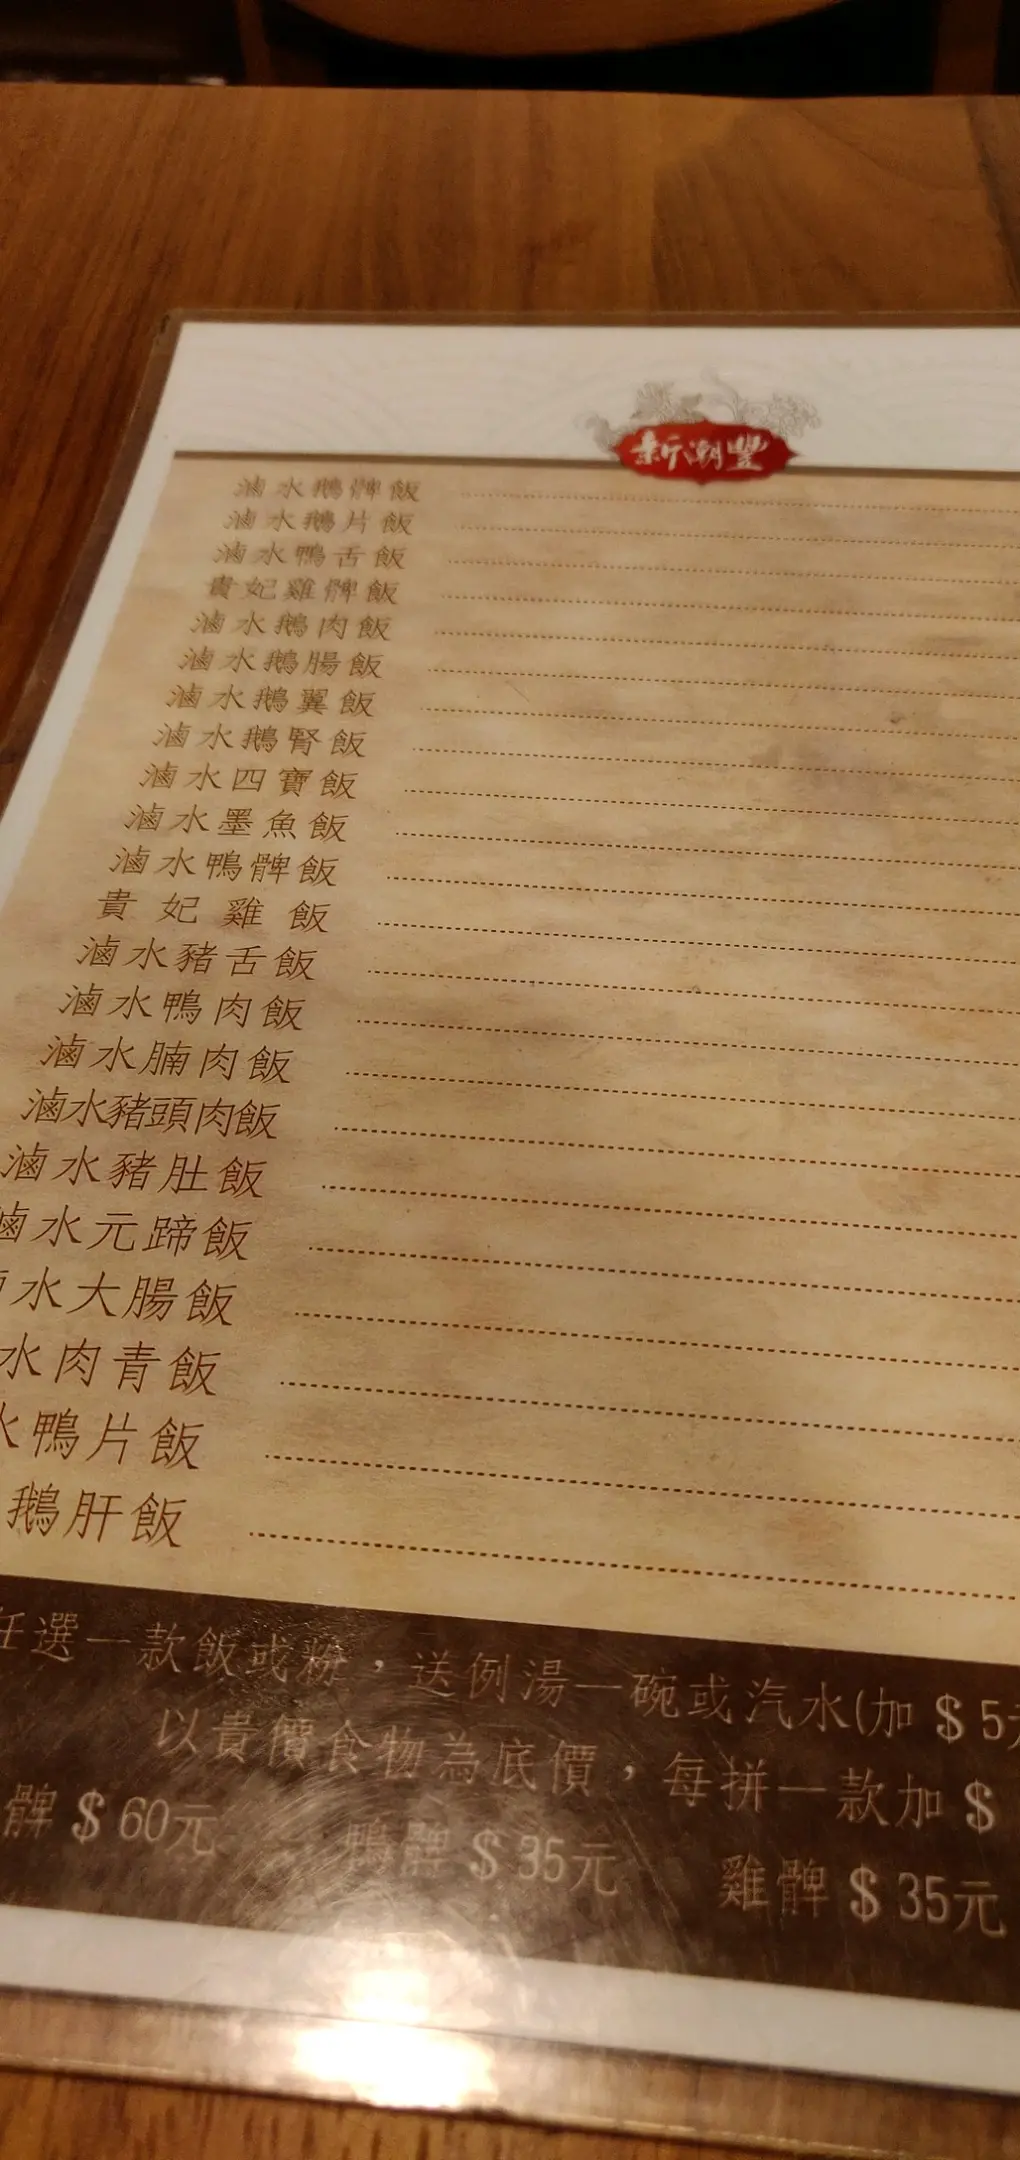 新潮豐
滷水鵝髀飯
滷水鵝片飯
滷水鴨舌飯
貴妃雞髀飯
滷水鵝肉飯
滷水鵝腸飯
滷水鵝翼飯
滷水鵝腎飯
滷水四寶飯
滷水墨魚飯
滷水鴨髀飯
貴妃雞飯
滷水豬舌飯
滷水鴨肉飯
滷水腩肉飯
滷水豬頭肉飯
滷水豬肚飯
滷水元蹄飯
水大腸飯
水肉青飯
水鴨片飯
鵝肝飯
任選一款飯或粉，送例湯一碗或汽水(加 $5元
以貴價食物為底價，每拼一款加 $
髀 $60元 鴨髀 $35元 雞髀 $35元